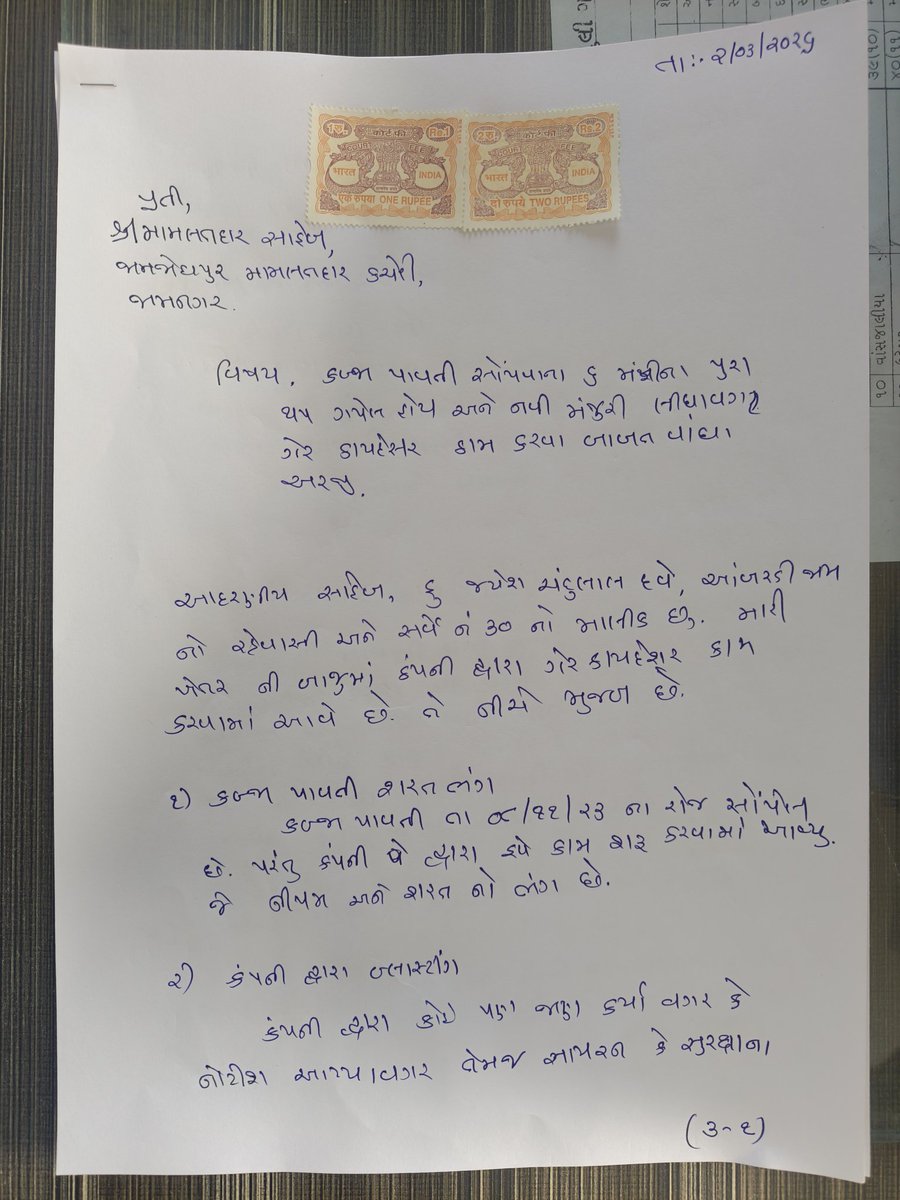 તા:- ૨/૦૩/૨૦૨૬
1રુ. कोर्ट फी Rs.1
COURT FEE
भारत INDIA
एक रुपया ONE RUPEE
2रु. कोर्ट फी Rs.2
COURT FEE
भारत INDIA
दो रुपये TWO RUPEES
પ્રતી,
શ્રી મામલતદાર સાહેબ,
જામજોધપુર મામલતદાર કચેરી,
જામનગર.
વિષય. કબ્જા પાવતી સોંપવાના ૬ મંત્રીના પુરા
થય ગયેલ હોય અને નવી મંજુરી લીધાવગર
ગેર કાયદેસર કામ કરવા બાબત વાંધા
અરજી.
આદરણીય સાહેબ, હુ જયેશ ચંદુલાલ દવે, આંબરડી જામ
નો રહેવાસી અને સર્વે નં ૩૦ નો માલીક છુ. મારી
ખેતર ની બાજુમાં કંપની દ્વારા ગેર કાયદેશર કામ
કરવામાં આવે છે. તે નીચે મુજબ છે.
૧) કબ્જા પાવતી શરત ભંગ
કબ્જા પાવતી તા ૦૯/૧૧/૨૩ ના રોજ સોંપીત
છે. પરંતુ કંપની દ્વારા હવે કામ શરૂ કરવામાં આવ્યુ.
જે નીયમ અને શરત નો ભંગ છે.
૨) કંપની દ્વારા બ્લાસ્ટીંગ
કંપની દ્વારા કોઇ પણ જાણ કર્યા વગર કે
નોટીશ આપ્યાવગર તેમજ સાયરન કે સુરક્ષાના
(૩-૧)